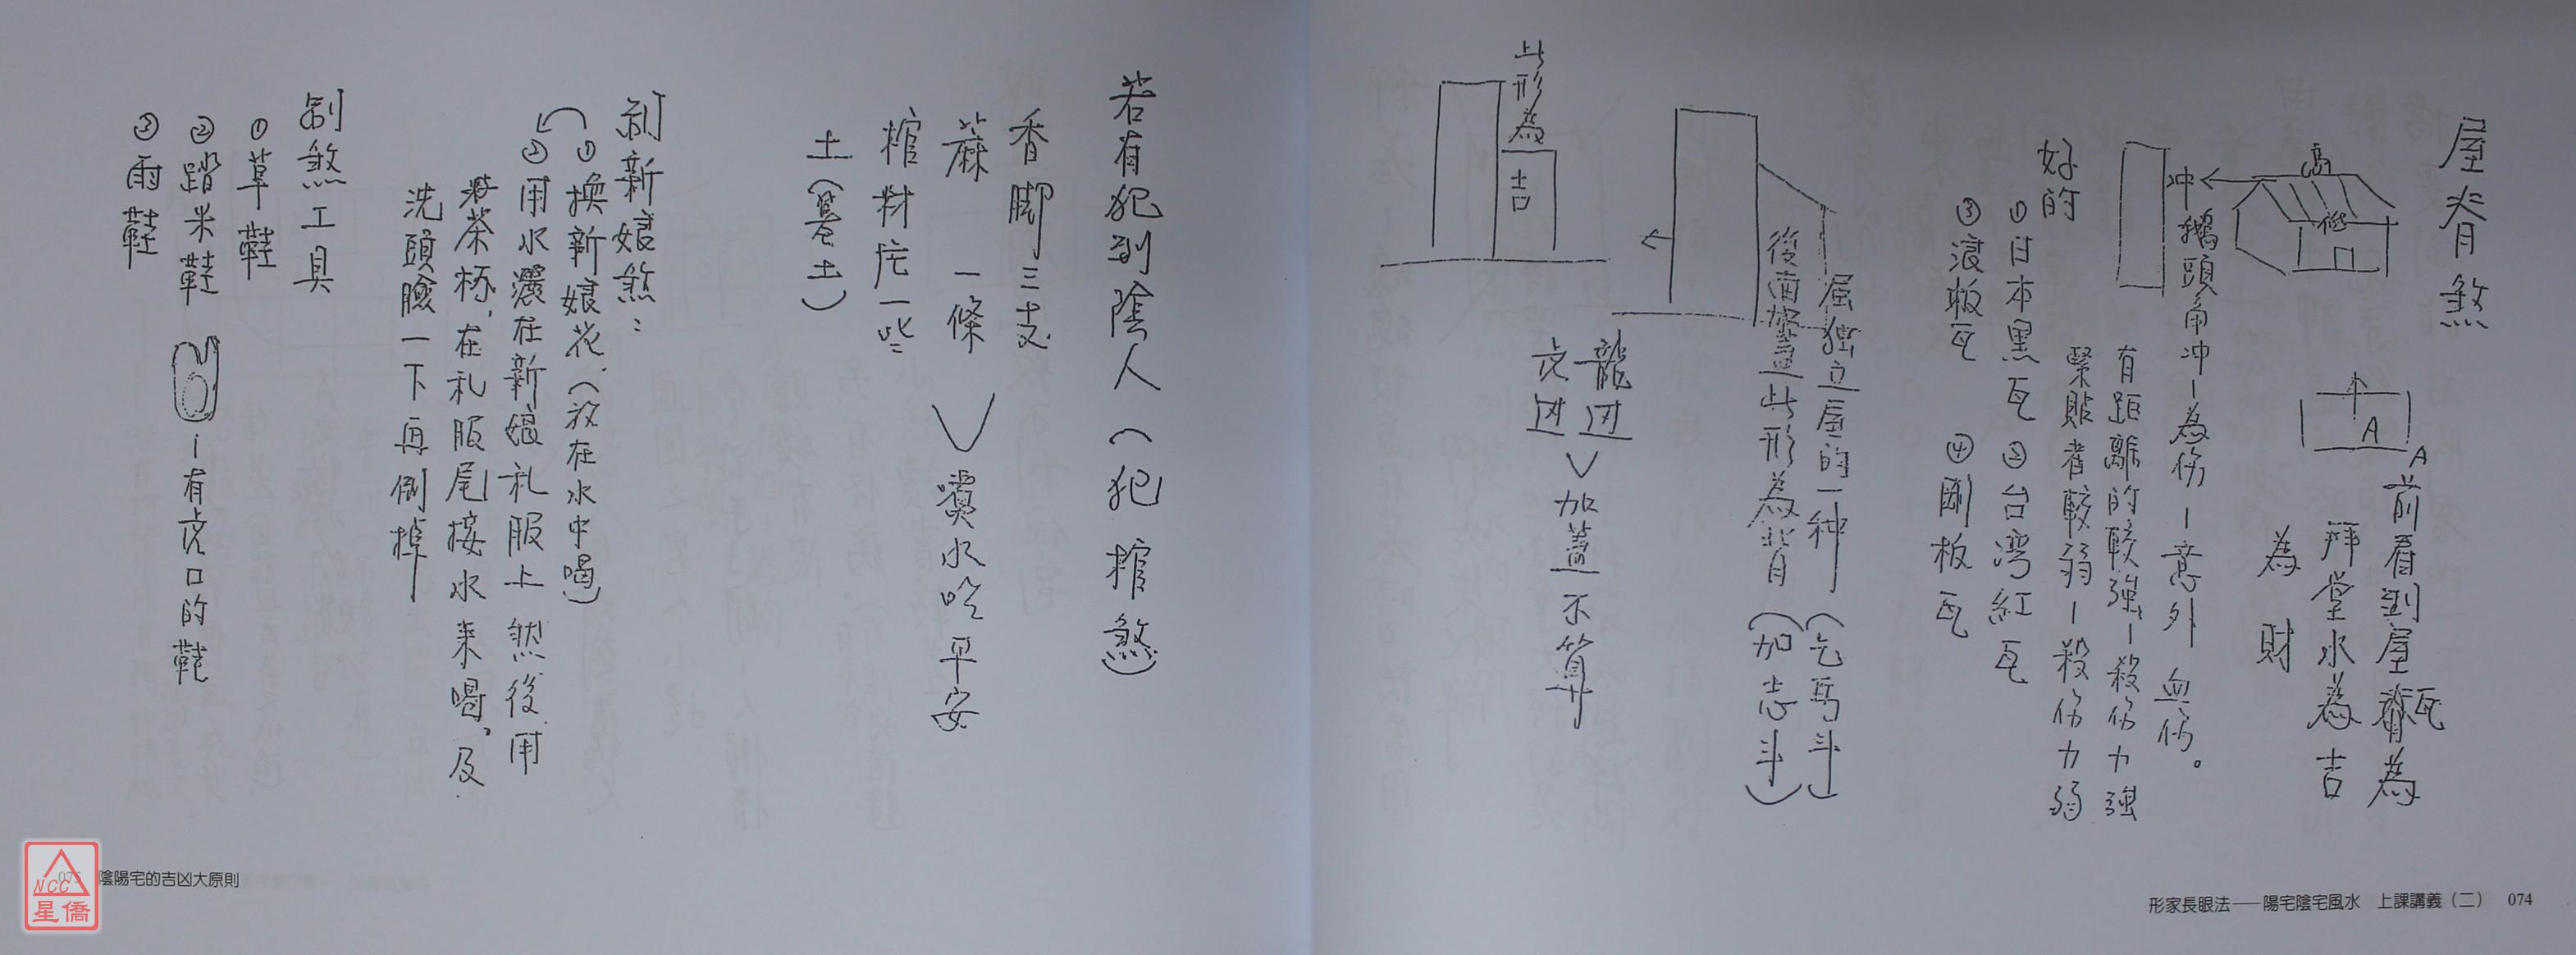 屋脊煞
高
低
冲
A
A
前看到屋脊瓦為
拜堂水為吉
為財
鵝頭角冲－為伤－意外血伤。
有距離的較強－殺伤力強
緊貼者較弱－殺伤力弱
好的
①日本黑瓦 ②台湾紅瓦
③浪板瓦 ④剛板瓦
屬獨立屋的一种
後面加蓋此形為背
(加志斗)
此形為
吉
龍边
虎边
加蓋不算
若有犯到陰人(犯棺煞)
香脚三支
蔴一條
棺材疕一些
土(墓土)
噴水唸平安
制新娘煞：
①換新娘花.(放在水中喝)
②用水灑在新娘礼服上然後用
茶杯,在礼服尾接水來喝,及
洗頭臉一下再倒掉
制煞工具
①草鞋
②踏米鞋－有虎口的鞋
③雨鞋
形家長眼法——陽宅陰宅風水 上課講義(二) 074
075 陰陽宅的吉凶大原則
NCC
星僑